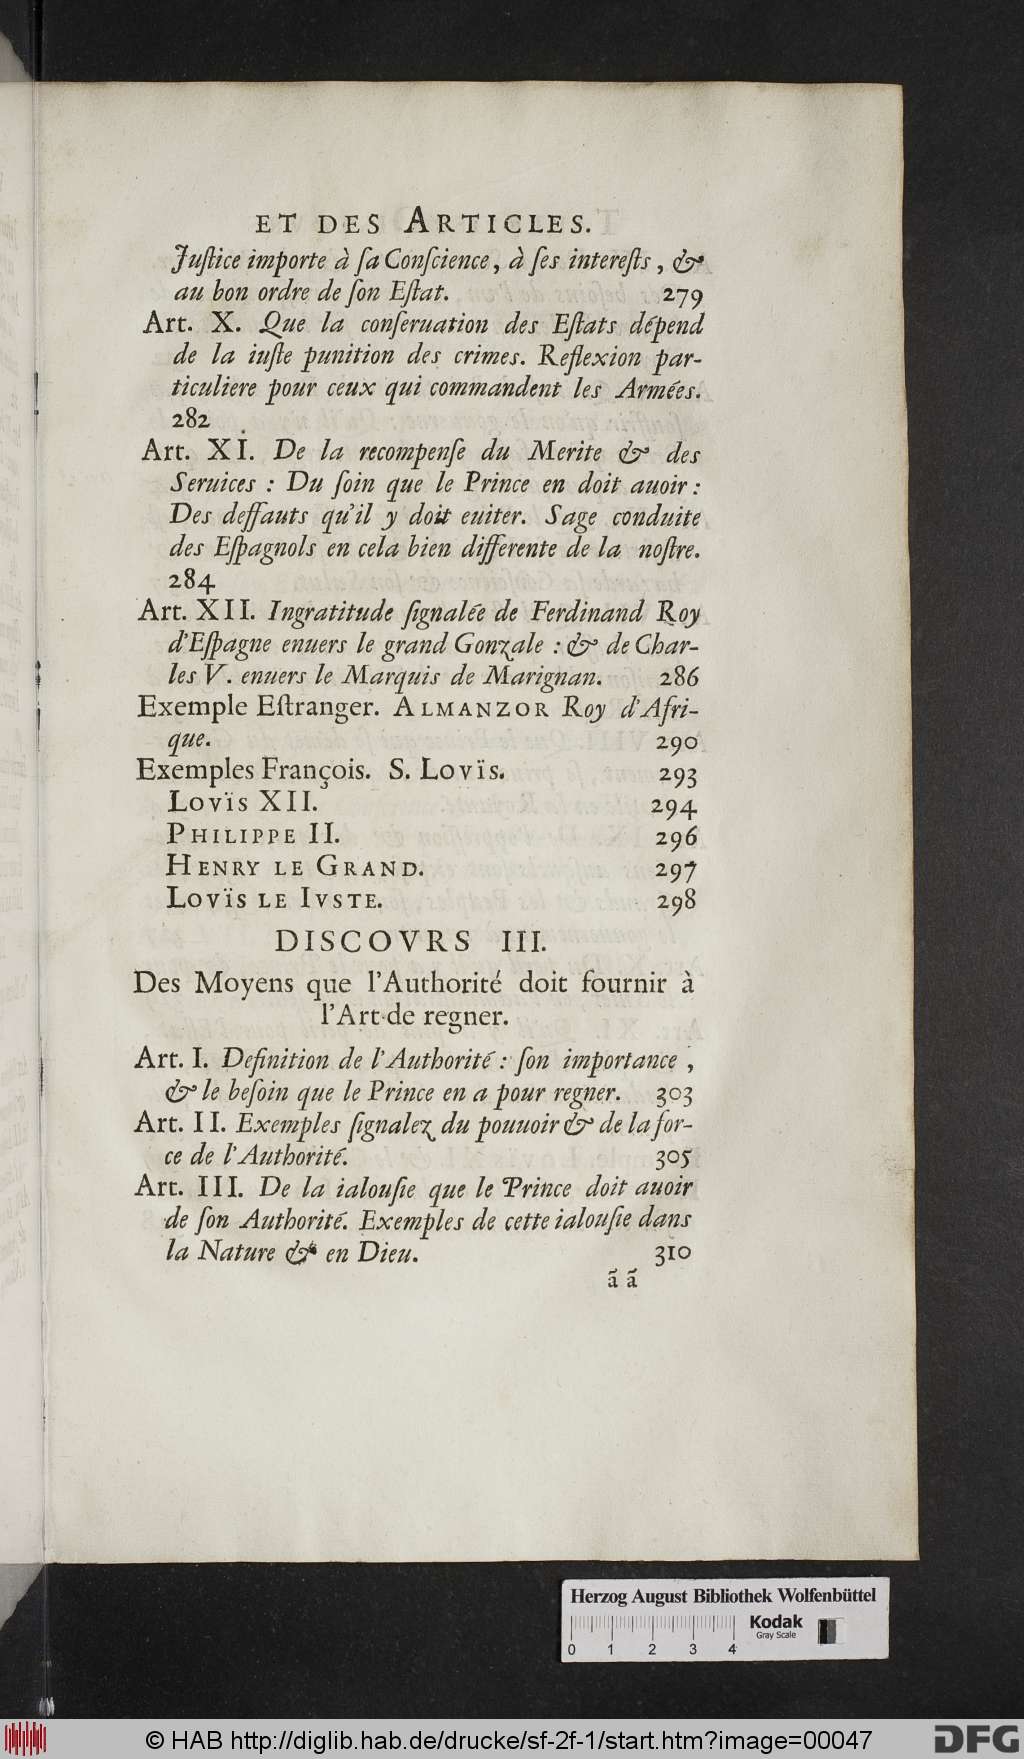 ET DES ARTICLES.
Juſtice importe à ſa Conſcience, à ſes intereſts, &
au bon ordre de ſon Eſtat. 279
Art. X. Que la conſeruation des Eſtats dépend
de la iuſte punition des crimes. Reflexion par-
ticuliere pour ceux qui commandent les Armées.
282
Art. XI. De la recompenſe du Merite & des
Seruices : Du ſoin que le Prince en doit auoir :
Des deffauts qu'il y doit euiter. Sage conduite
des Eſpagnols en cela bien differente de la noſtre.
284
Art. XII. Ingratitude ſignalée de Ferdinand Roy
d'Eſpagne enuers le grand Gonzale : & de Char-
les V. enuers le Marquis de Marignan. 286
Exemple Eſtranger. ALMANZOR Roy d'Afri-
que. 290
Exemples François. S. Lovïs. 293
Lovïs XII. 294
PHILIPPE II. 296
HENRY LE GRAND. 297
Lovïs LE IVSTE. 298
DISCOVRS III.
Des Moyens que l'Authorité doit fournir à
l'Art de regner.
Art. I. Definition de l'Authorité : ſon importance ,
& le beſoin que le Prince en a pour regner. 303
Art. II. Exemples ſignalez du pouuoir & de la for-
ce de l'Authorité. 305
Art. III. De la ialouſie que le Prince doit auoir
de ſon Authorité. Exemples de cette ialouſie dans
la Nature & en Dieu. 310
ã ã
Herzog August Bibliothek Wolfenbüttel
Kodak
Gray Scale
0 1 2 3 4
© HAB http://diglib.hab.de/drucke/sf-2f-1/start.htm?image=00047
DFG